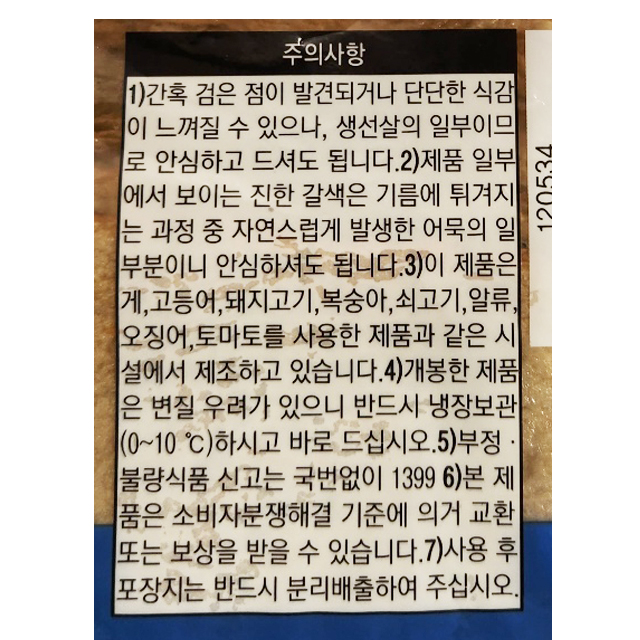 주의사항
1)간혹 검은 점이 발견되거나 단단한 식감
이 느껴질 수 있으나, 생선살의 일부이므
로 안심하고 드셔도 됩니다.2)제품 일부
에서 보이는 진한 갈색은 기름에 튀겨지
는 과정 중 자연스럽게 발생한 어묵의 일
부분이니 안심하셔도 됩니다.3)이 제품은
게,고등어,돼지고기,복숭아,쇠고기,알류,
오징어,토마토를 사용한 제품과 같은 시
설에서 제조하고 있습니다.4)개봉한 제품
은 변질 우려가 있으니 반드시 냉장보관
(0~10 ℃)하시고 바로 드십시오.5)부정·
불량식품 신고는 국번없이 1399 6)본 제
품은 소비자분쟁해결 기준에 의거 교환
또는 보상을 받을 수 있습니다.7)사용 후
포장지는 반드시 분리배출하여 주십시오.
120534